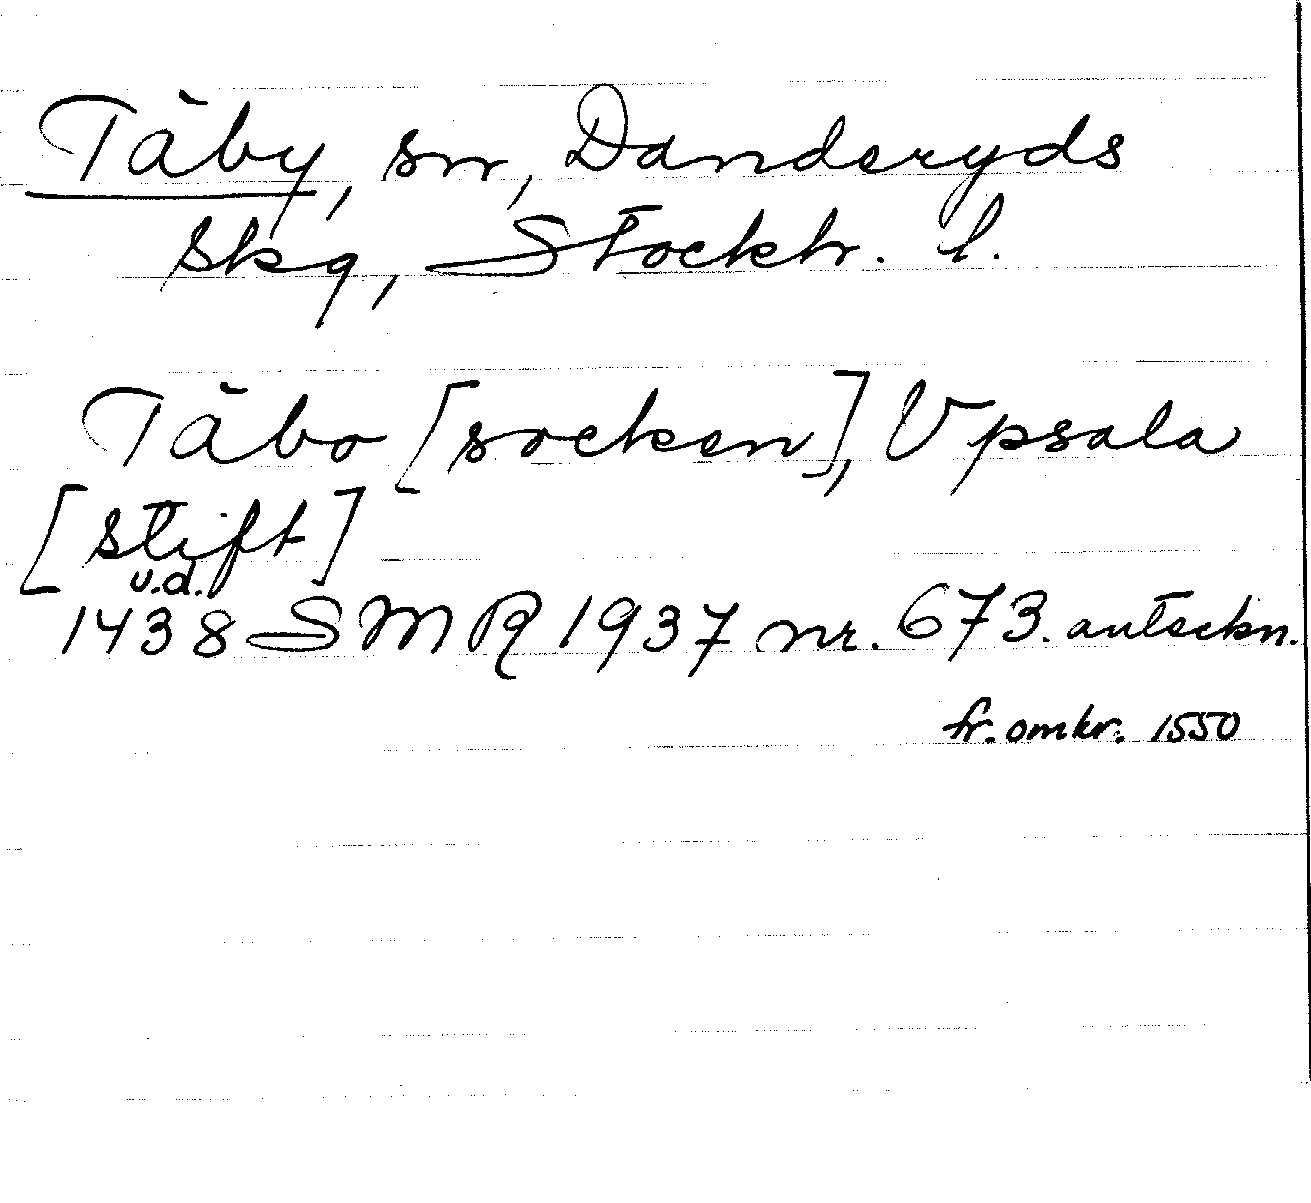 Täby, sn, Danderyds
skg, Stockh. l.
Täbo [socken], Vpsala
[stift]
u.d.
1438 SMR 1937 nr. 673. anteckn.
fr. omkr. 1550